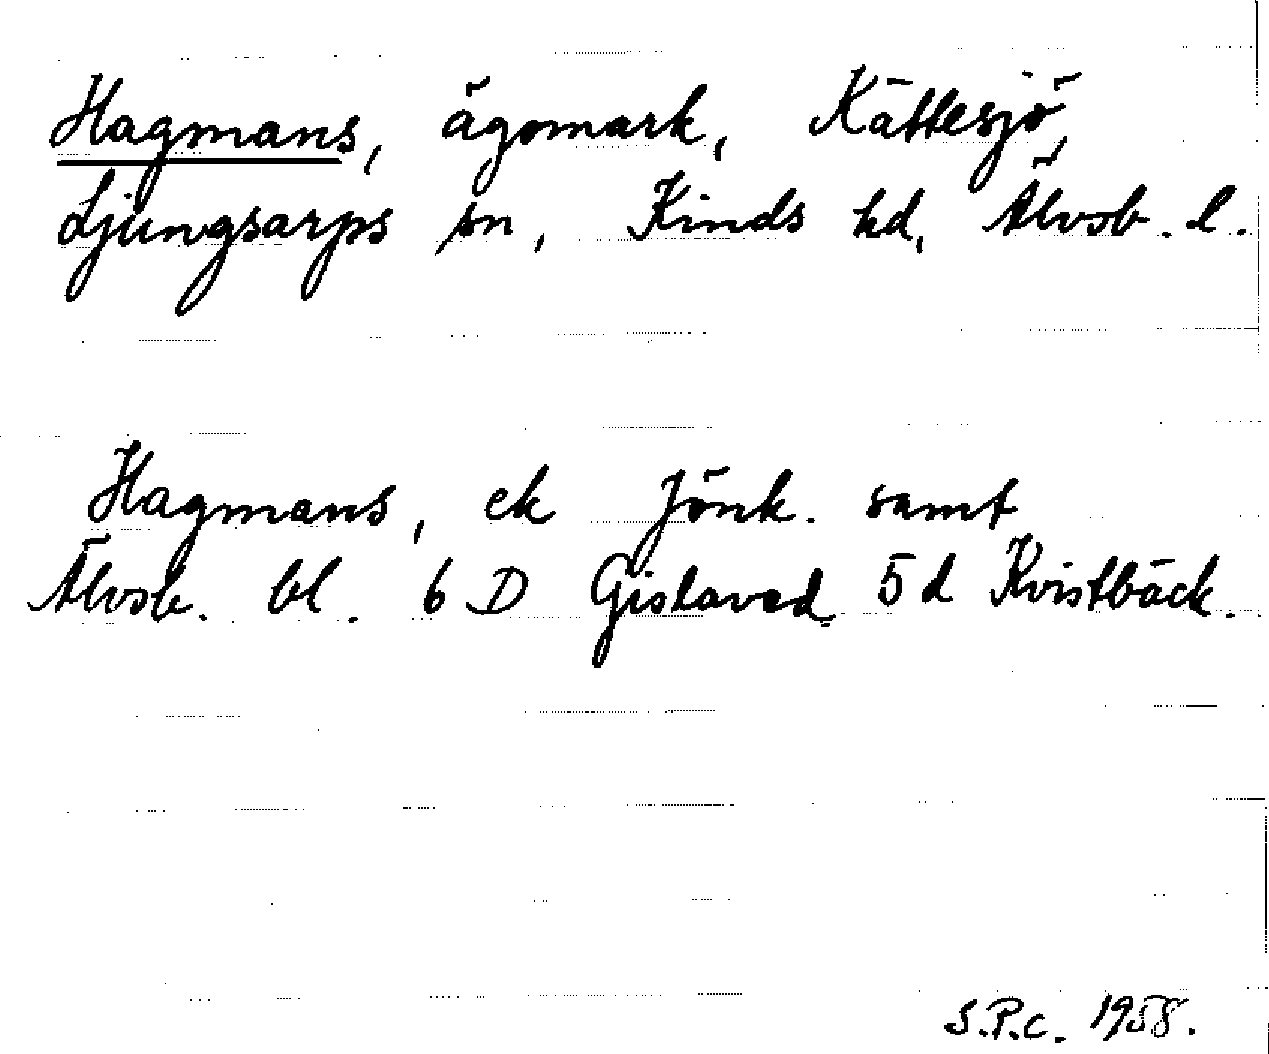 Hagmans, ägomark, Kättesjö,
Ljungsarps sn, Kinds hd, Älvsb. l.
Hagmans, ek Jönk. samt
Älvsb. bl. 6 D Gislaved 5d Kvistbäck.
S.P.C. 1958.